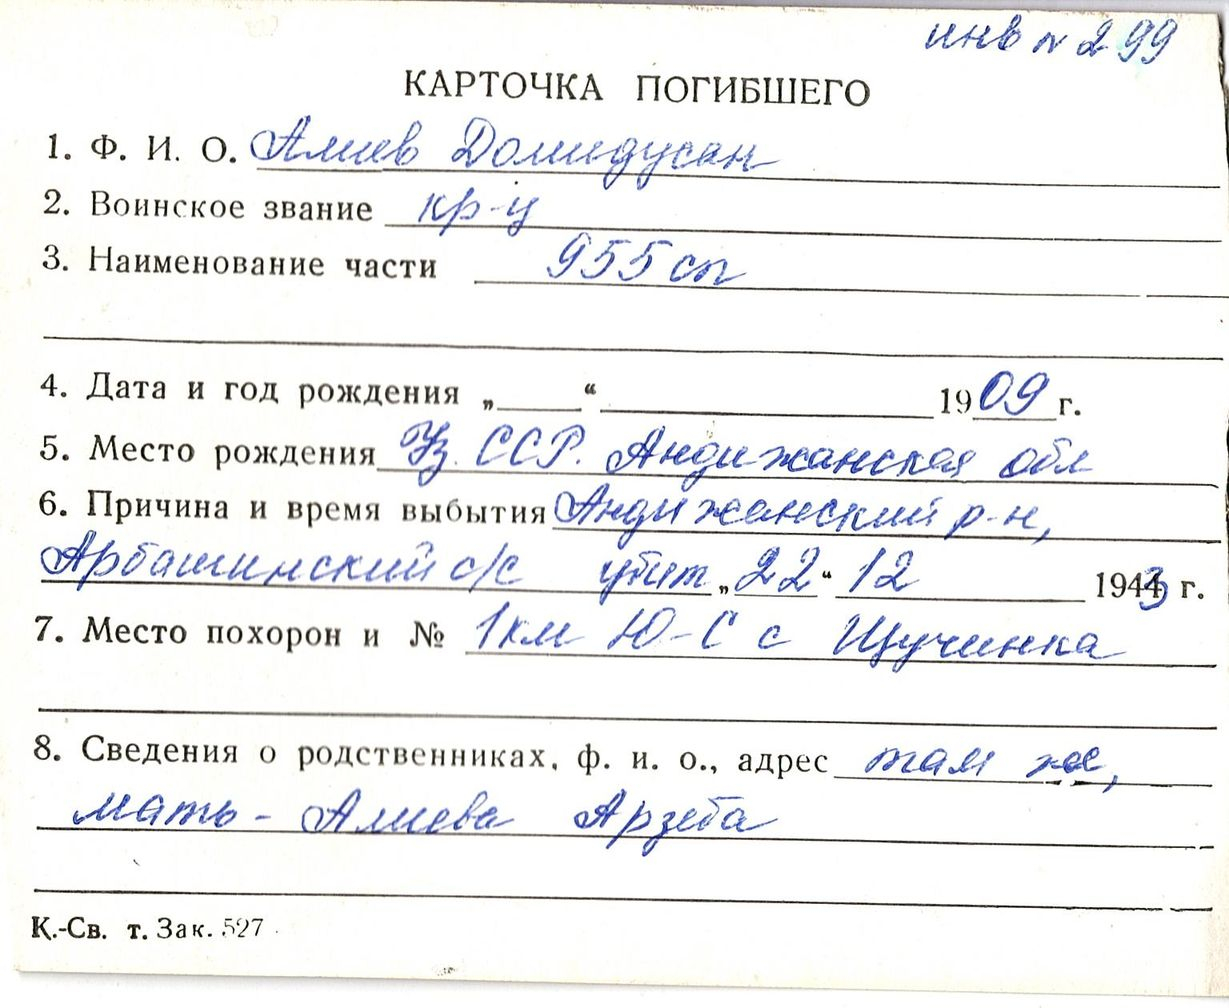 инв № 299
КАРТОЧКА ПОГИБШЕГО
1. Ф. И. О. Алиев Домидусан
2. Воинское звание кр-ц
3. Наименование части 955 сп
4. Дата и год рождения „ “ 1909 г.
5. Место рождения Уз. ССР. Андижанская обл
6. Причина и время выбытия Андижанский р-н,
Арбашинский с/с убит „22“ 12 1943 г.
7. Место похорон и № 1 км Ю-С с Щучинка
8. Сведения о родственниках, ф. и. о., адрес там же,
мать - Алиева Арзеба
К.-Св. т. Зак. 527